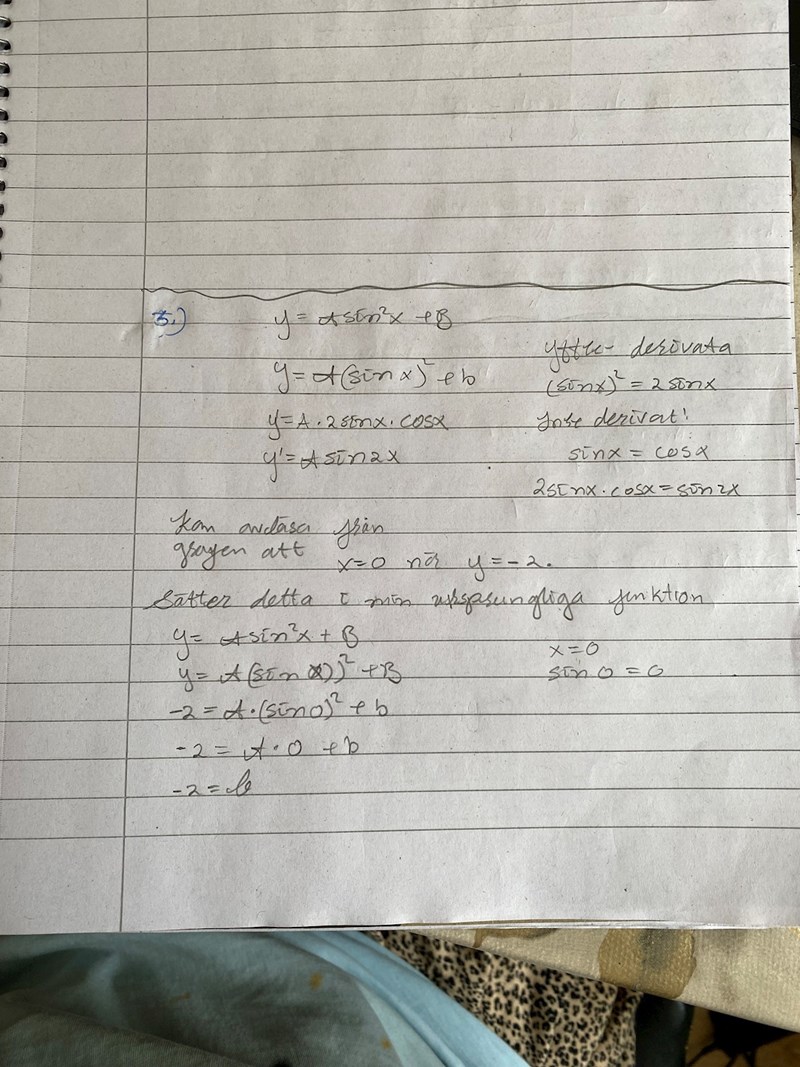 3.)
y = A sin²x + B
y = A(sin x)² + b
y = A · 2 sinx · cosx
y' = A sin2x
yttre- derivata
(sinx)² = 2 sinx
Inre derivat:
sinx = cosx
2sinx · cosx = sin2x
kan avläsa från
grafen att x=0 när y=-2.
Sätter detta i min ursprungliga funktion
y = A sin²x + B
y = A(sin(x))² + B
-2 = A·(sin0)² + b
-2 = A · 0 + b
-2 = b
x=0
sin 0 = 0